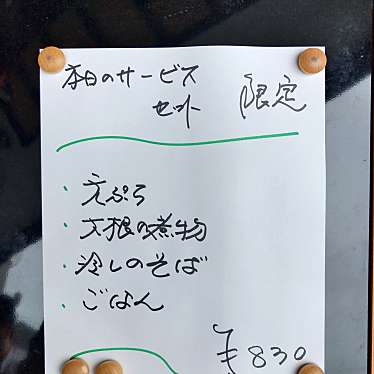 本日のサービス
セット 限定
・天ぷら
・大根の煮物
・冷しのそば
・ごはん
¥830